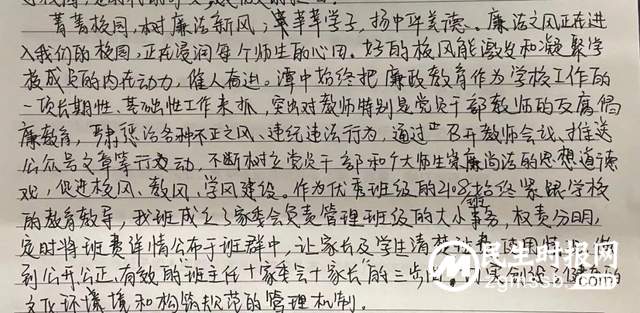 菁菁校园，树廉洁新风；莘莘学子，扬中华美德。廉洁之风正在进
入我们的校园，正在浸润每个师生的心田。好的校风能激发和凝聚学
校成员的内在动力，催人奋进。潭中始终把廉政教育作为学校工作的
一项长期性、基础性工作来抓，突出对教师特别是党员干部教师的反腐倡
廉教育，肃惩治各种不正之风、违纪违法行为，通过"召开教师会议、推送
公众号文章等行为动，不断树立党员干部和广大师生崇廉尚法的思想道德
观，促进校风、教风、学风建设。作为优秀班级的2108班始终紧跟学校
的教育教导，我班成立了家委会负责管理班级的大小事务，权责分明，
定时将班费详情公布于班群中，让家长及学生清楚班费
到公开公正，有效的"班主任+家委会+家长"的三步
文化环境境和构筑规范的管理机制。
民生时报网